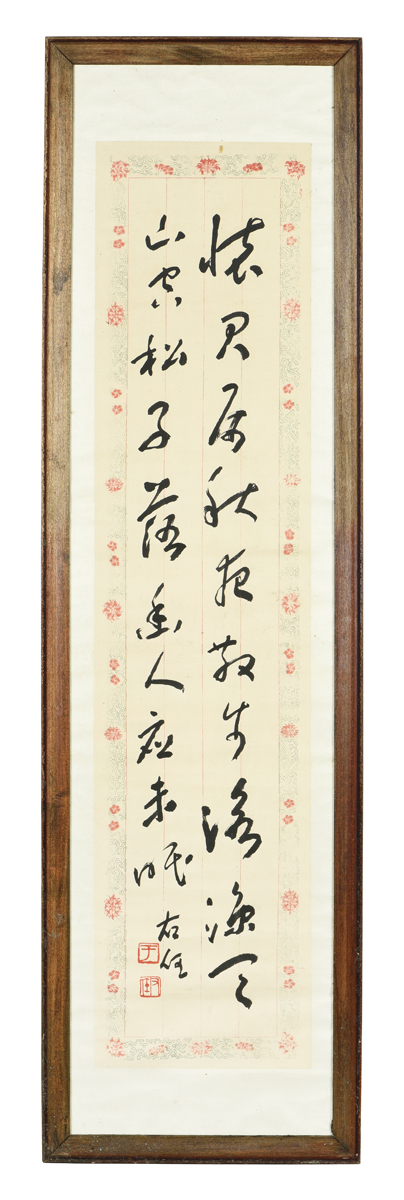 懷君屬秋夜散步詠涼天
山空松子落幽人應未眠
右任
于